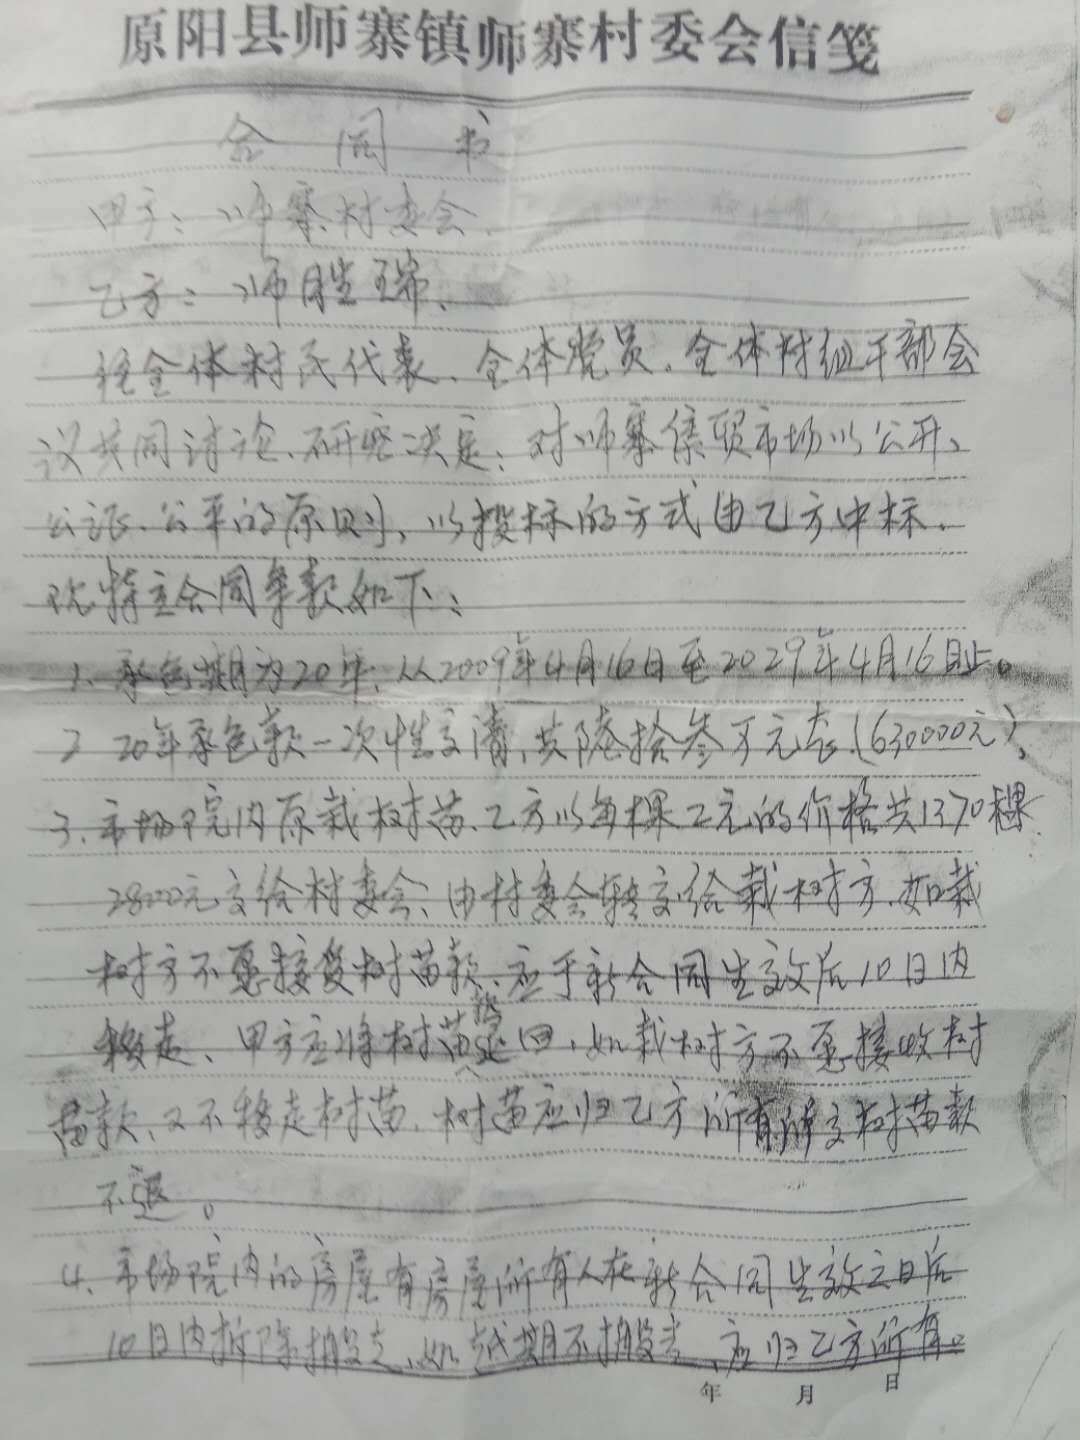 原阳县师寨镇师寨村委会信笺
合同书
甲方：师寨村委会
乙方：师胜瑞、
经全体村民代表、全体党员、全体村组干部会
议共同讨论、研究决定：对师寨贸市场以公开、
公证、公平的原则、以投标的方式由乙方中标、
现特立合同条款如下：
1、承包期为20年、从2009年4月16日至2029年4月16日止。
2 20年承包款一次性交清，共陆拾叁万元 (630000元)、
3、市场院内原栽树苗、乙方以每棵 元的价格共1370棵
28000元交给村委会、由村委会转交给栽树方、如栽
树方不愿接受树苗款、应于新合同生效后10日内
移走、甲方应将树苗款退回，如栽树方不愿接收树
苗款、又不移走树苗，树苗应归乙方所有所交树苗款
不退。
4、市场院内的房屋有房屋所有人在新合同生效之日后
10日内拆除搬走、如越期不搬走、应归乙方所有。
年 月 日